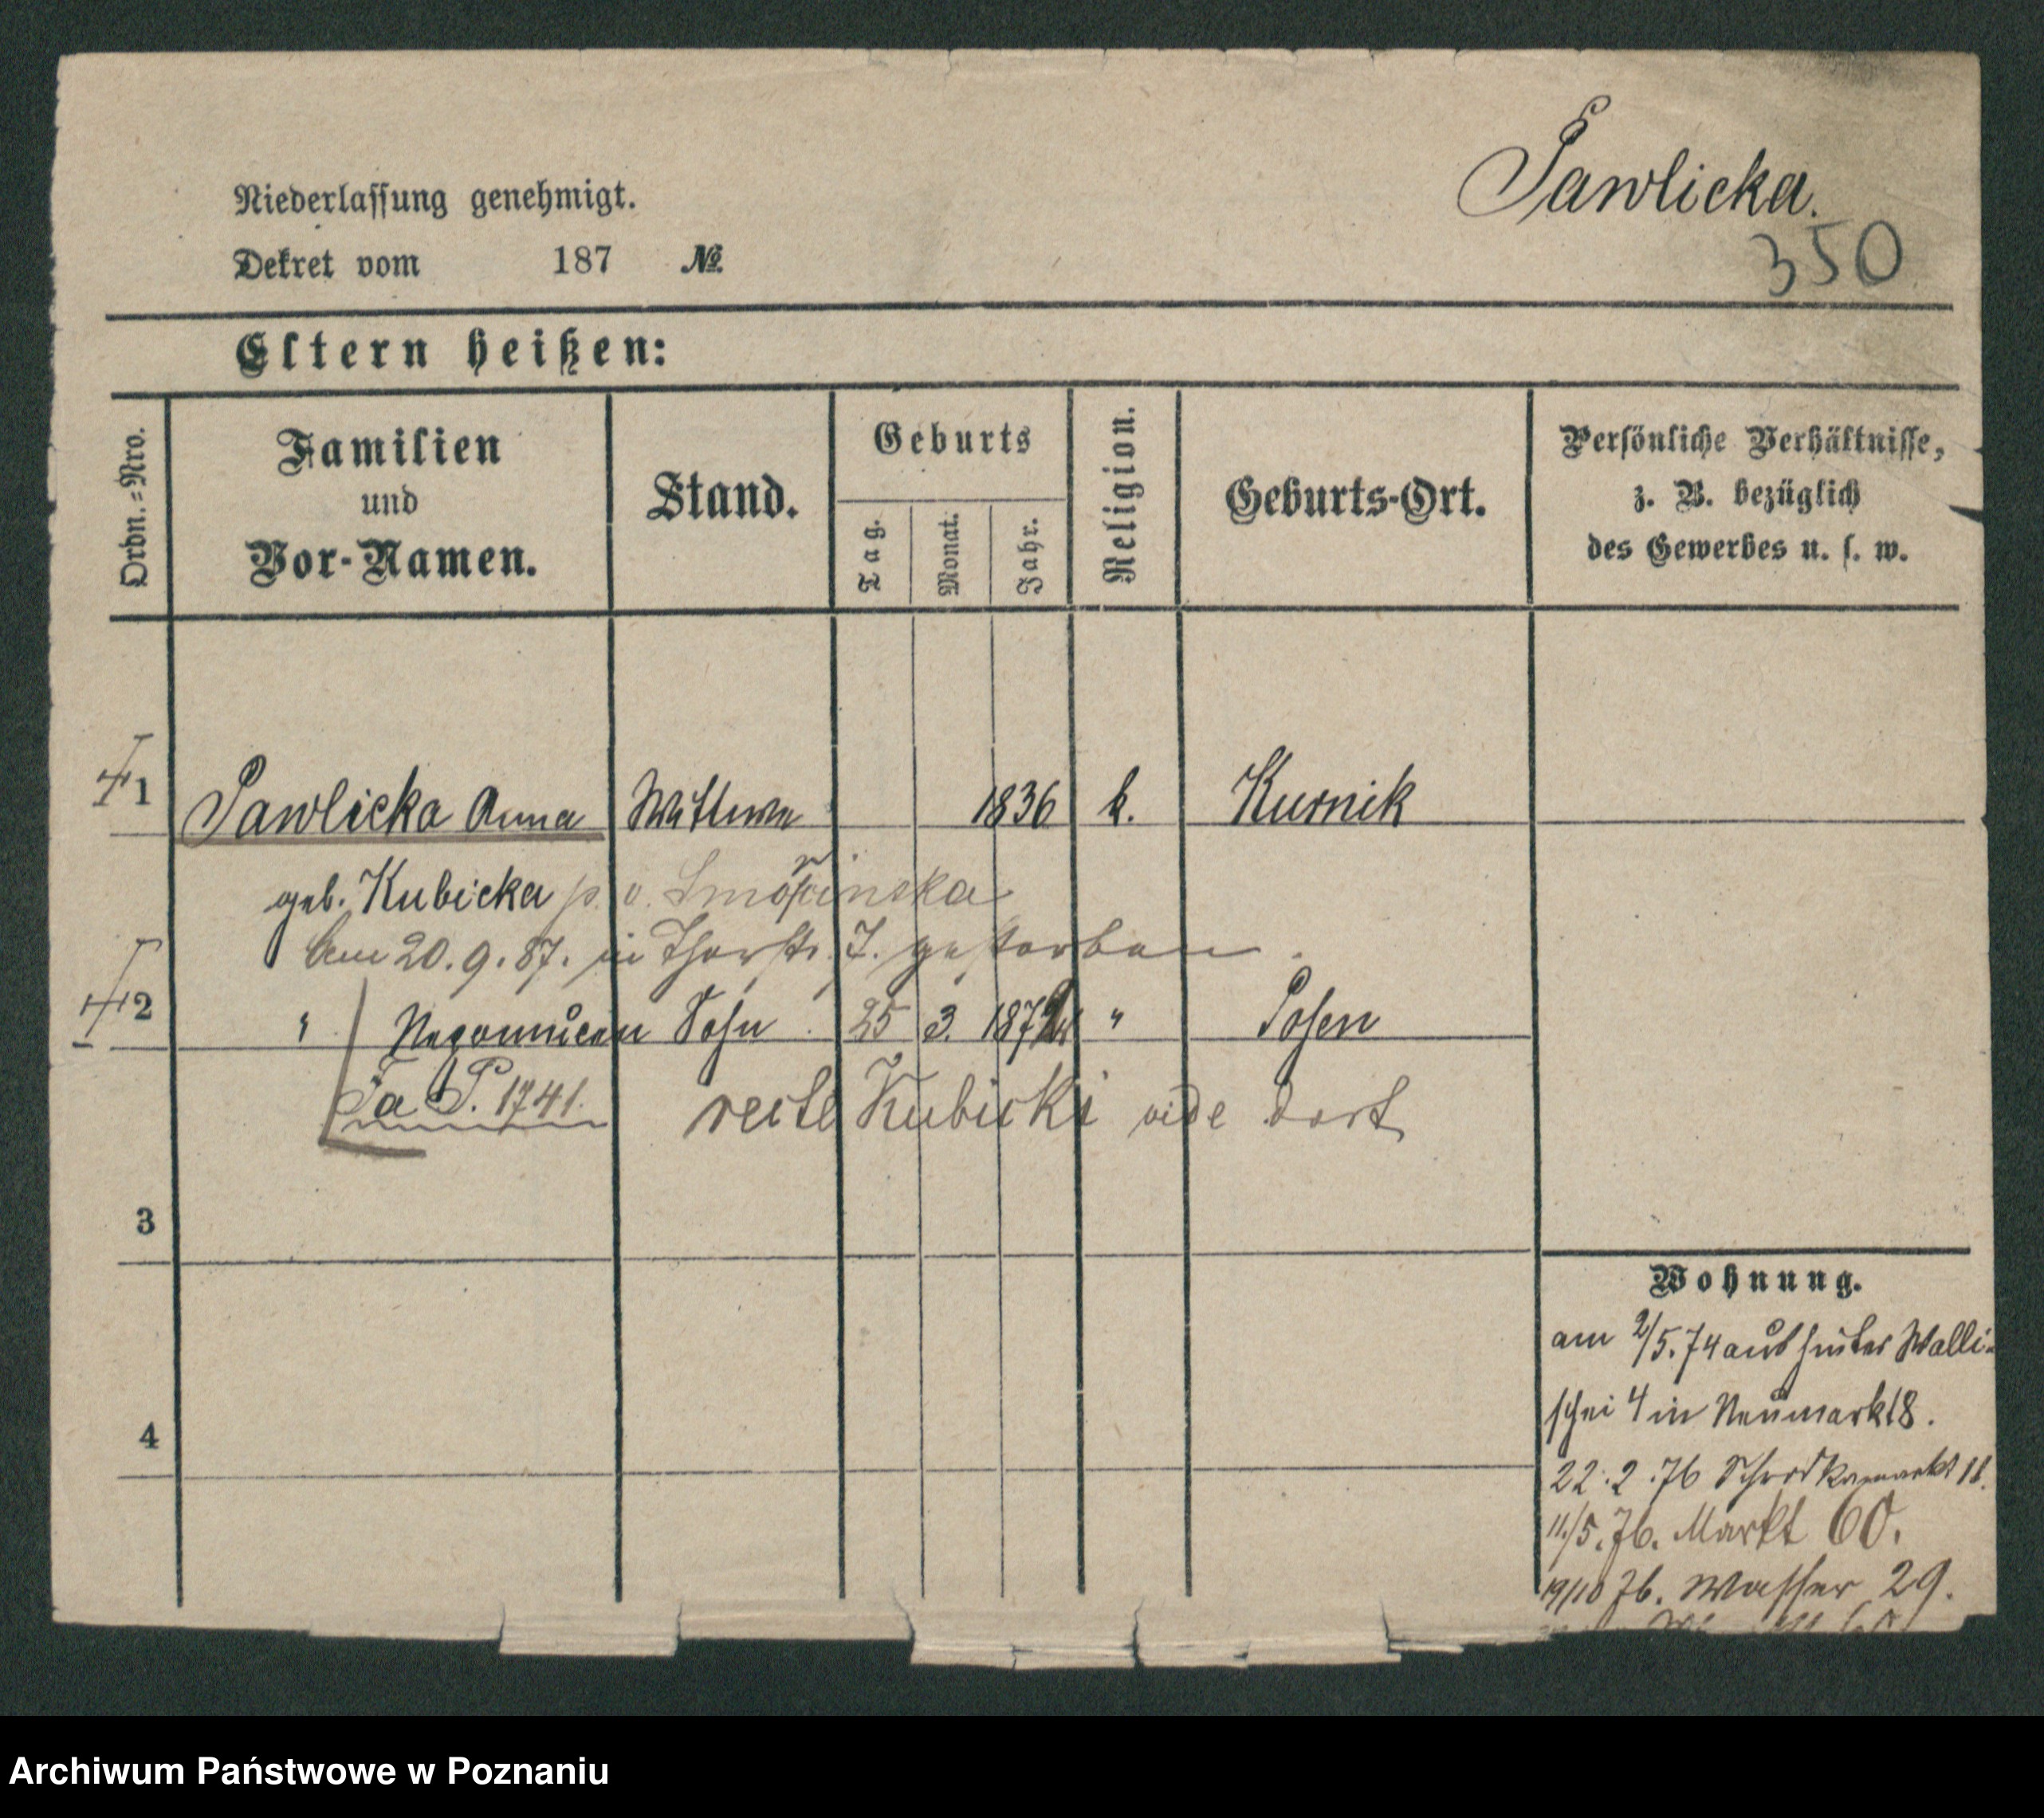 Pawlicka.
350
Niederlassung genehmigt.
Dekret vom 187 №
Eltern heißen:
Ordn.-Nro.
Familien
und
Vor-Namen.
Stand.
Geburts
Tag.
Monat.
Jahr.
Religion.
Geburts-Ort.
Persönliche Verhältnisse,
z. B. bezüglich
des Gewerbes u. s. w.
1 Pawlicka Anna Wittwe 1836 k. Kurnik
geb. Kubicka p. v.
Am 20.9.87. in Thorstr. 7. gestorben.
2 " Nepomucen Sohn 25 3. " Posen
Fa P. 1741. recte Kubicki vide dort
3
4
Wohnung.
am 2/5.74 aus hinter Walli-
schei 4 in Neumarkt 8.
22.2.76 Schrodkamarkt
11./5.76. Markt 60.
19/10 76. Wasser 29.
Archiwum Państwowe w Poznaniu